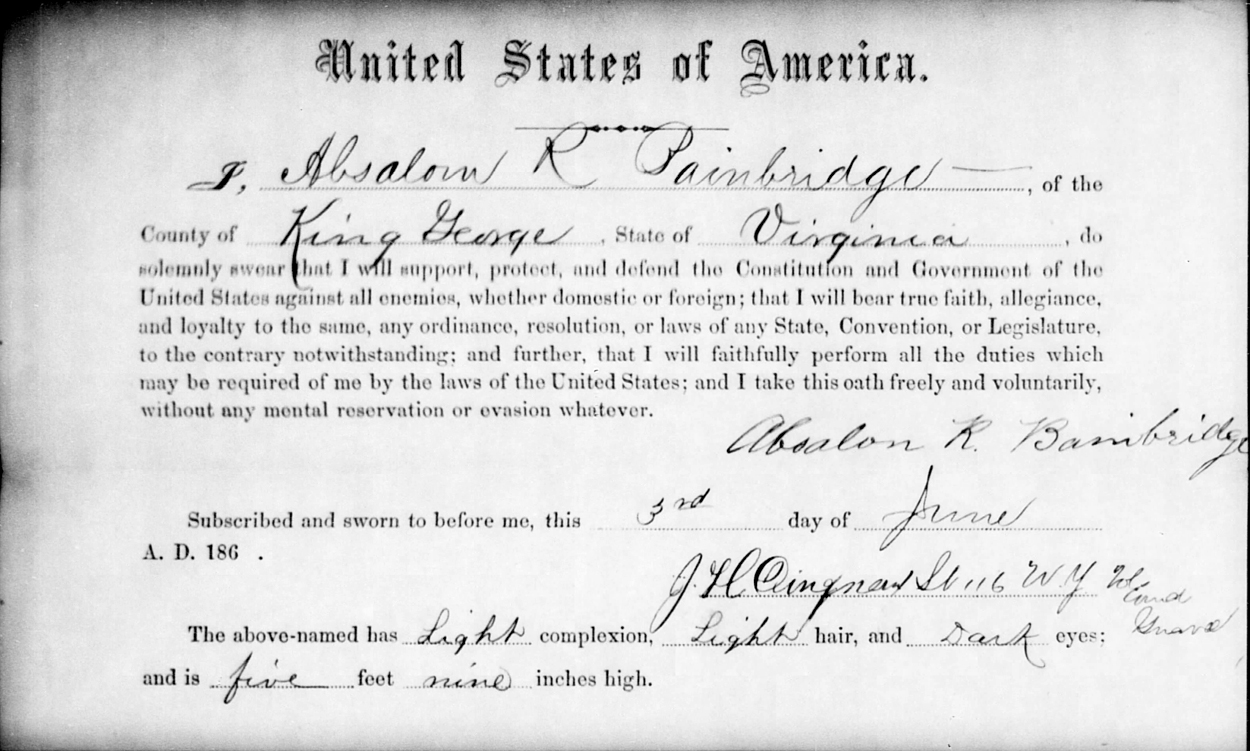 United States of America.
I, Absalom R Bainbridge, of the
County of King George, State of Virginia, do
solemnly swear that I will support, protect, and defend the Constitution and Government of the
United States against all enemies, whether domestic or foreign; that I will bear true faith, allegiance,
and loyalty to the same, any ordinance, resolution, or laws of any State, Convention, or Legislature,
to the contrary notwithstanding; and further, that I will faithfully perform all the duties which
may be required of me by the laws of the United States; and I take this oath freely and voluntarily,
without any mental reservation or evasion whatever.
Absalon R. Bainbridge
Subscribed and sworn to before me, this 3rd day of June
A. D. 186 .
J. H. 116 N.Y.
The above-named has Light complexion, Light hair, and Dark eyes;
and is five feet nine inches high.